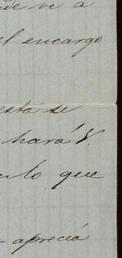 vi á
el encargo
está se
hará V.
lo que
apreciá